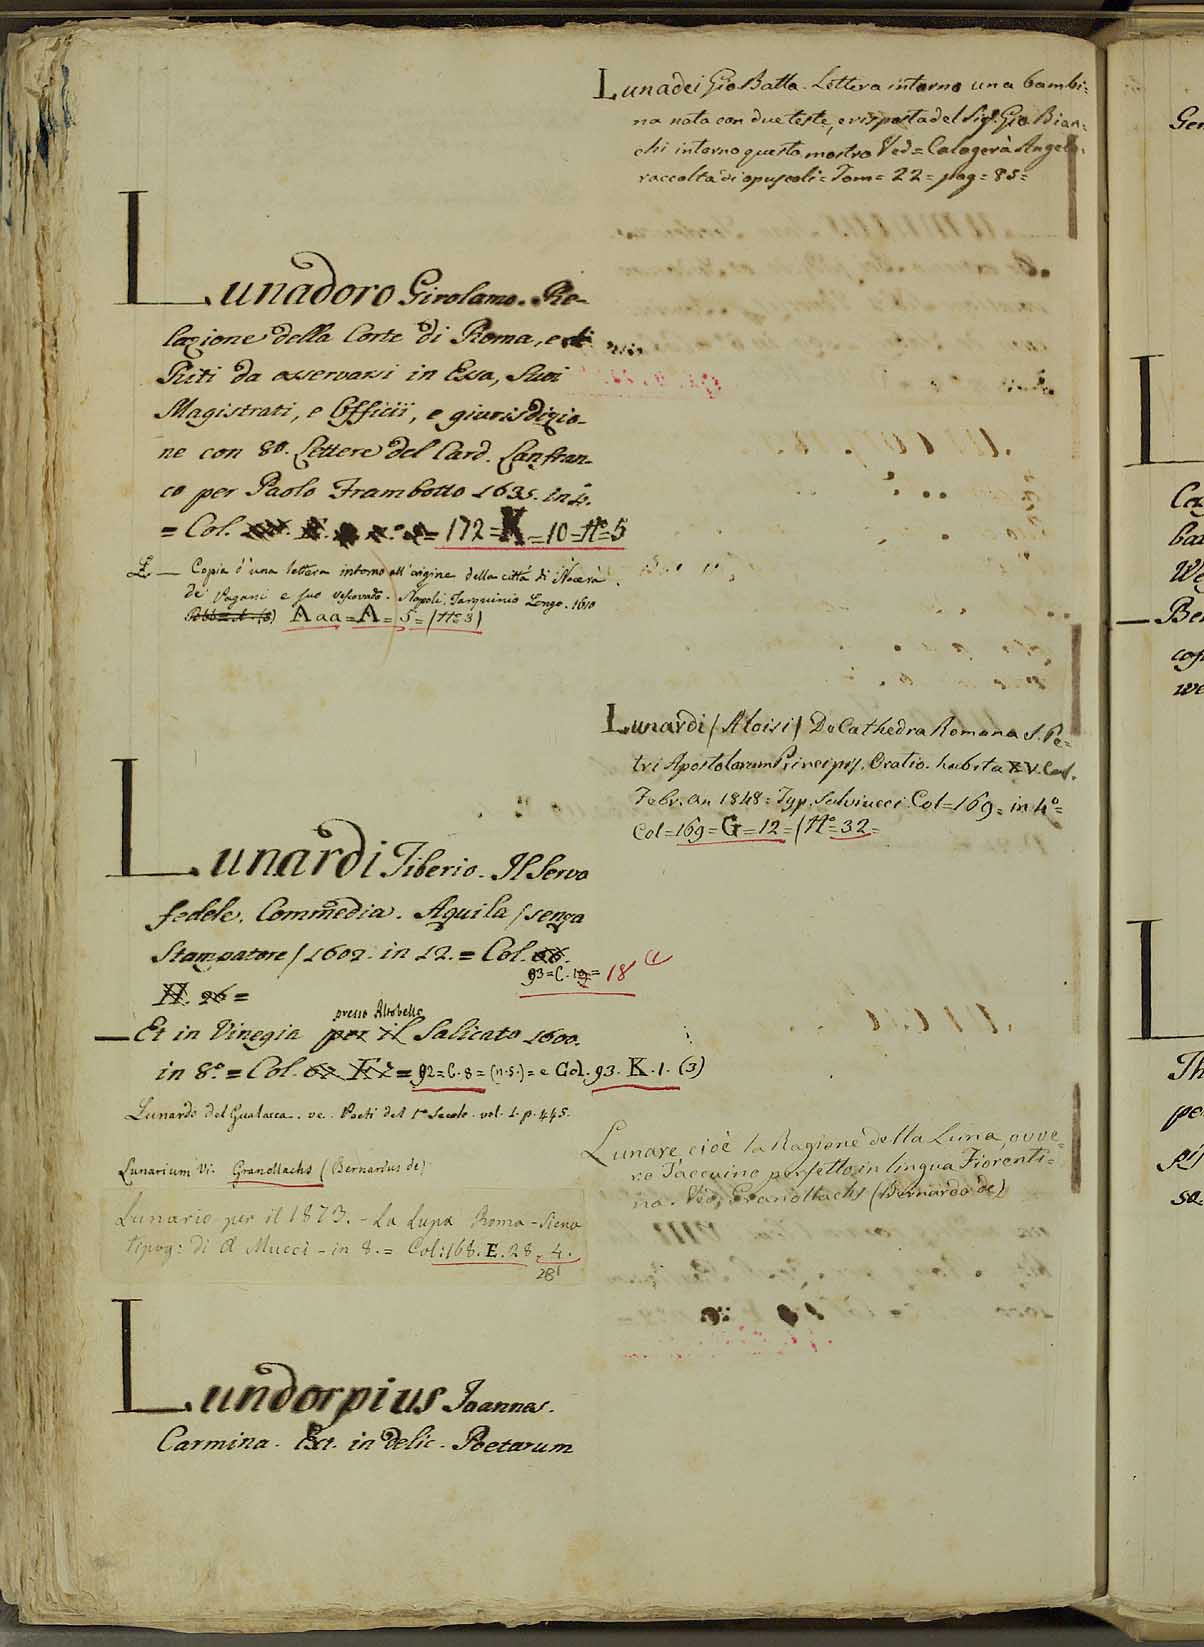 Lunadoro Girolamo. Re-
lazione della Corte di Roma, e di
Riti da osservarsi in Essa, Suoi
Magistrati, e Officii, e giurisdizio-
ne con 80. Lettere del Card. Lanfran-
co per Paolo Frambotto 1635. in 4.
= Col. = 172 = K = 10 = N° = 5
L — Copia d'una lettera intorno all'origine della città di Nocera
de' Pagani e suo vescovado. Napoli, Tarquinio Longo. 1610
Aaa = A = 5 = (N° 3)
Lunardi Tiberio. Il Servo
fedele. Commedia. Aquila / senza
Stampatore / 1602. in 12. = Col.
93 = C. 19 = 18
N. 26 =
presso Altobello
— Et in Vinegia per il Salicato 1600.
in 8.° = Col. = 92 = C. 8 = (n. 5.) = e Col. 93. K. 1. (3)
Lunardo del Gualacca. ve. Poeti del 1° Secolo. vol. 1. p. 445.
Lunarium Vi. Granollachs (Bernardus de)
Lunario per il 1873. - La Lupa Roma - Siena
tipog: di A Mucci - in 8. = Col: 168. E. 28. 4.
28
Lundorpius Joannes.
Carmina. Ext. in delic. Poetarum
Lunadei Gio Batta. Lettera intorno una bambi=
na nata con due teste, e risposta del Sigr. Gio. Bian=
chi intorno questo mostro Ved = Calogerà Angelo.
raccolta di opuscoli = Tom = 22 = pag = 85 =
Lunardi / Aloisi / De Cathedra Romana S. Pe=
tri Apostolorum Principis. Oratio. habita XV. Cal.
Febr. an 1848 = Typ. Salviucci. Col = 169 = in 4° =
Col = 169 = G = 12 = (N° = 32 =
Lunare, cioè la Ragione della Luna, ovve=
ro Taccuino perfetto in lingua Fiorenti=
na. Ved, Granollachs (Bernardo de)
Ger
L
ba
We
— Be
cop
we
L
Th
pe